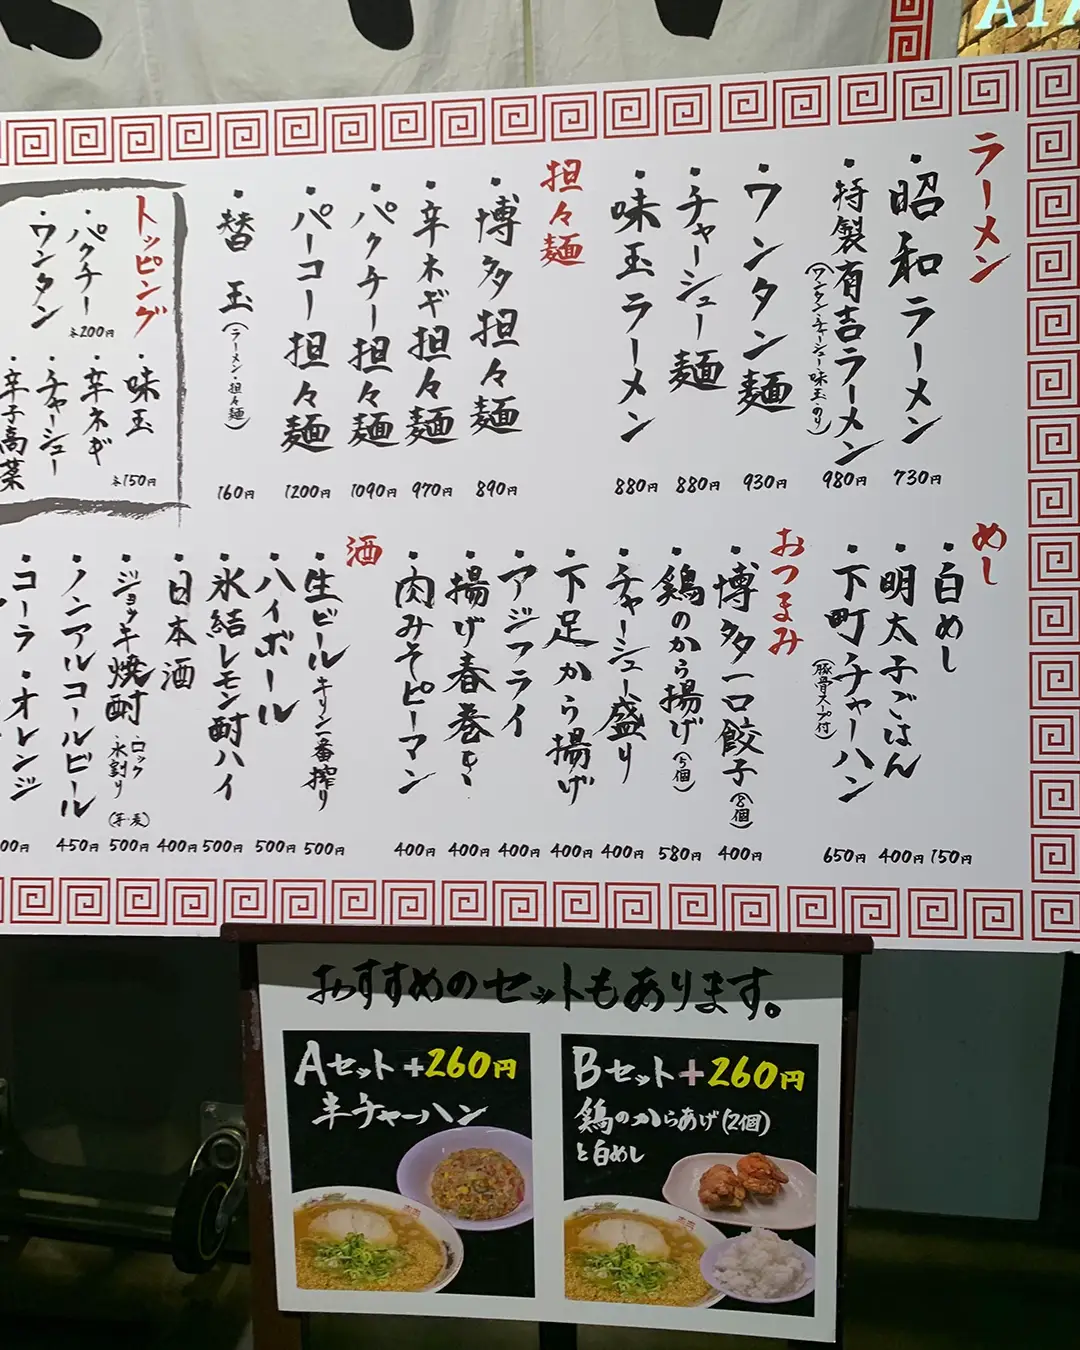 ラーメン
・昭和ラーメン
730円
・特製有吉ラーメン
(ワンタン・チャーシュー・味玉・のり)
980円
・ワンタン麺
930円
・チャーシュー麺
880円
・味玉ラーメン
880円
担々麺
・博多担々麺
890円
・辛ネギ担々麺
970円
・パクチー担々麺
1090円
・パーコー担々麺
1200円
・替玉
(ラーメン・担々麺)
160円
トッピング
・パクチー
・ワンタン
各200円
・味玉
・辛ネギ
・チャーシュー
・辛子高菜
各150円
めし
・白めし
150円
・明太子ごはん
400円
・下町チャーハン
(豚骨スープ付)
650円
おつまみ
・博多一口餃子(8個)
400円
・鶏のから揚げ(5個)
580円
・チャーシュー盛り
400円
・下足から揚げ
400円
・アジフライ
400円
・揚げ春巻き
400円
・肉みそピーマン
400円
酒
・生ビール キリン一番搾り
500円
・ハイボール
500円
・氷結レモン酎ハイ
500円
・日本酒
400円
・ジョッキ焼酎
・ロック
・水割り
(芋・麦)
500円
・ノンアルコールビール
450円
・コーラ・オレンジ
00円
おすすめのセットもあります。
Aセット+260円
半チャーハン
Bセット+260円
鶏のからあげ(2個)
と白めし